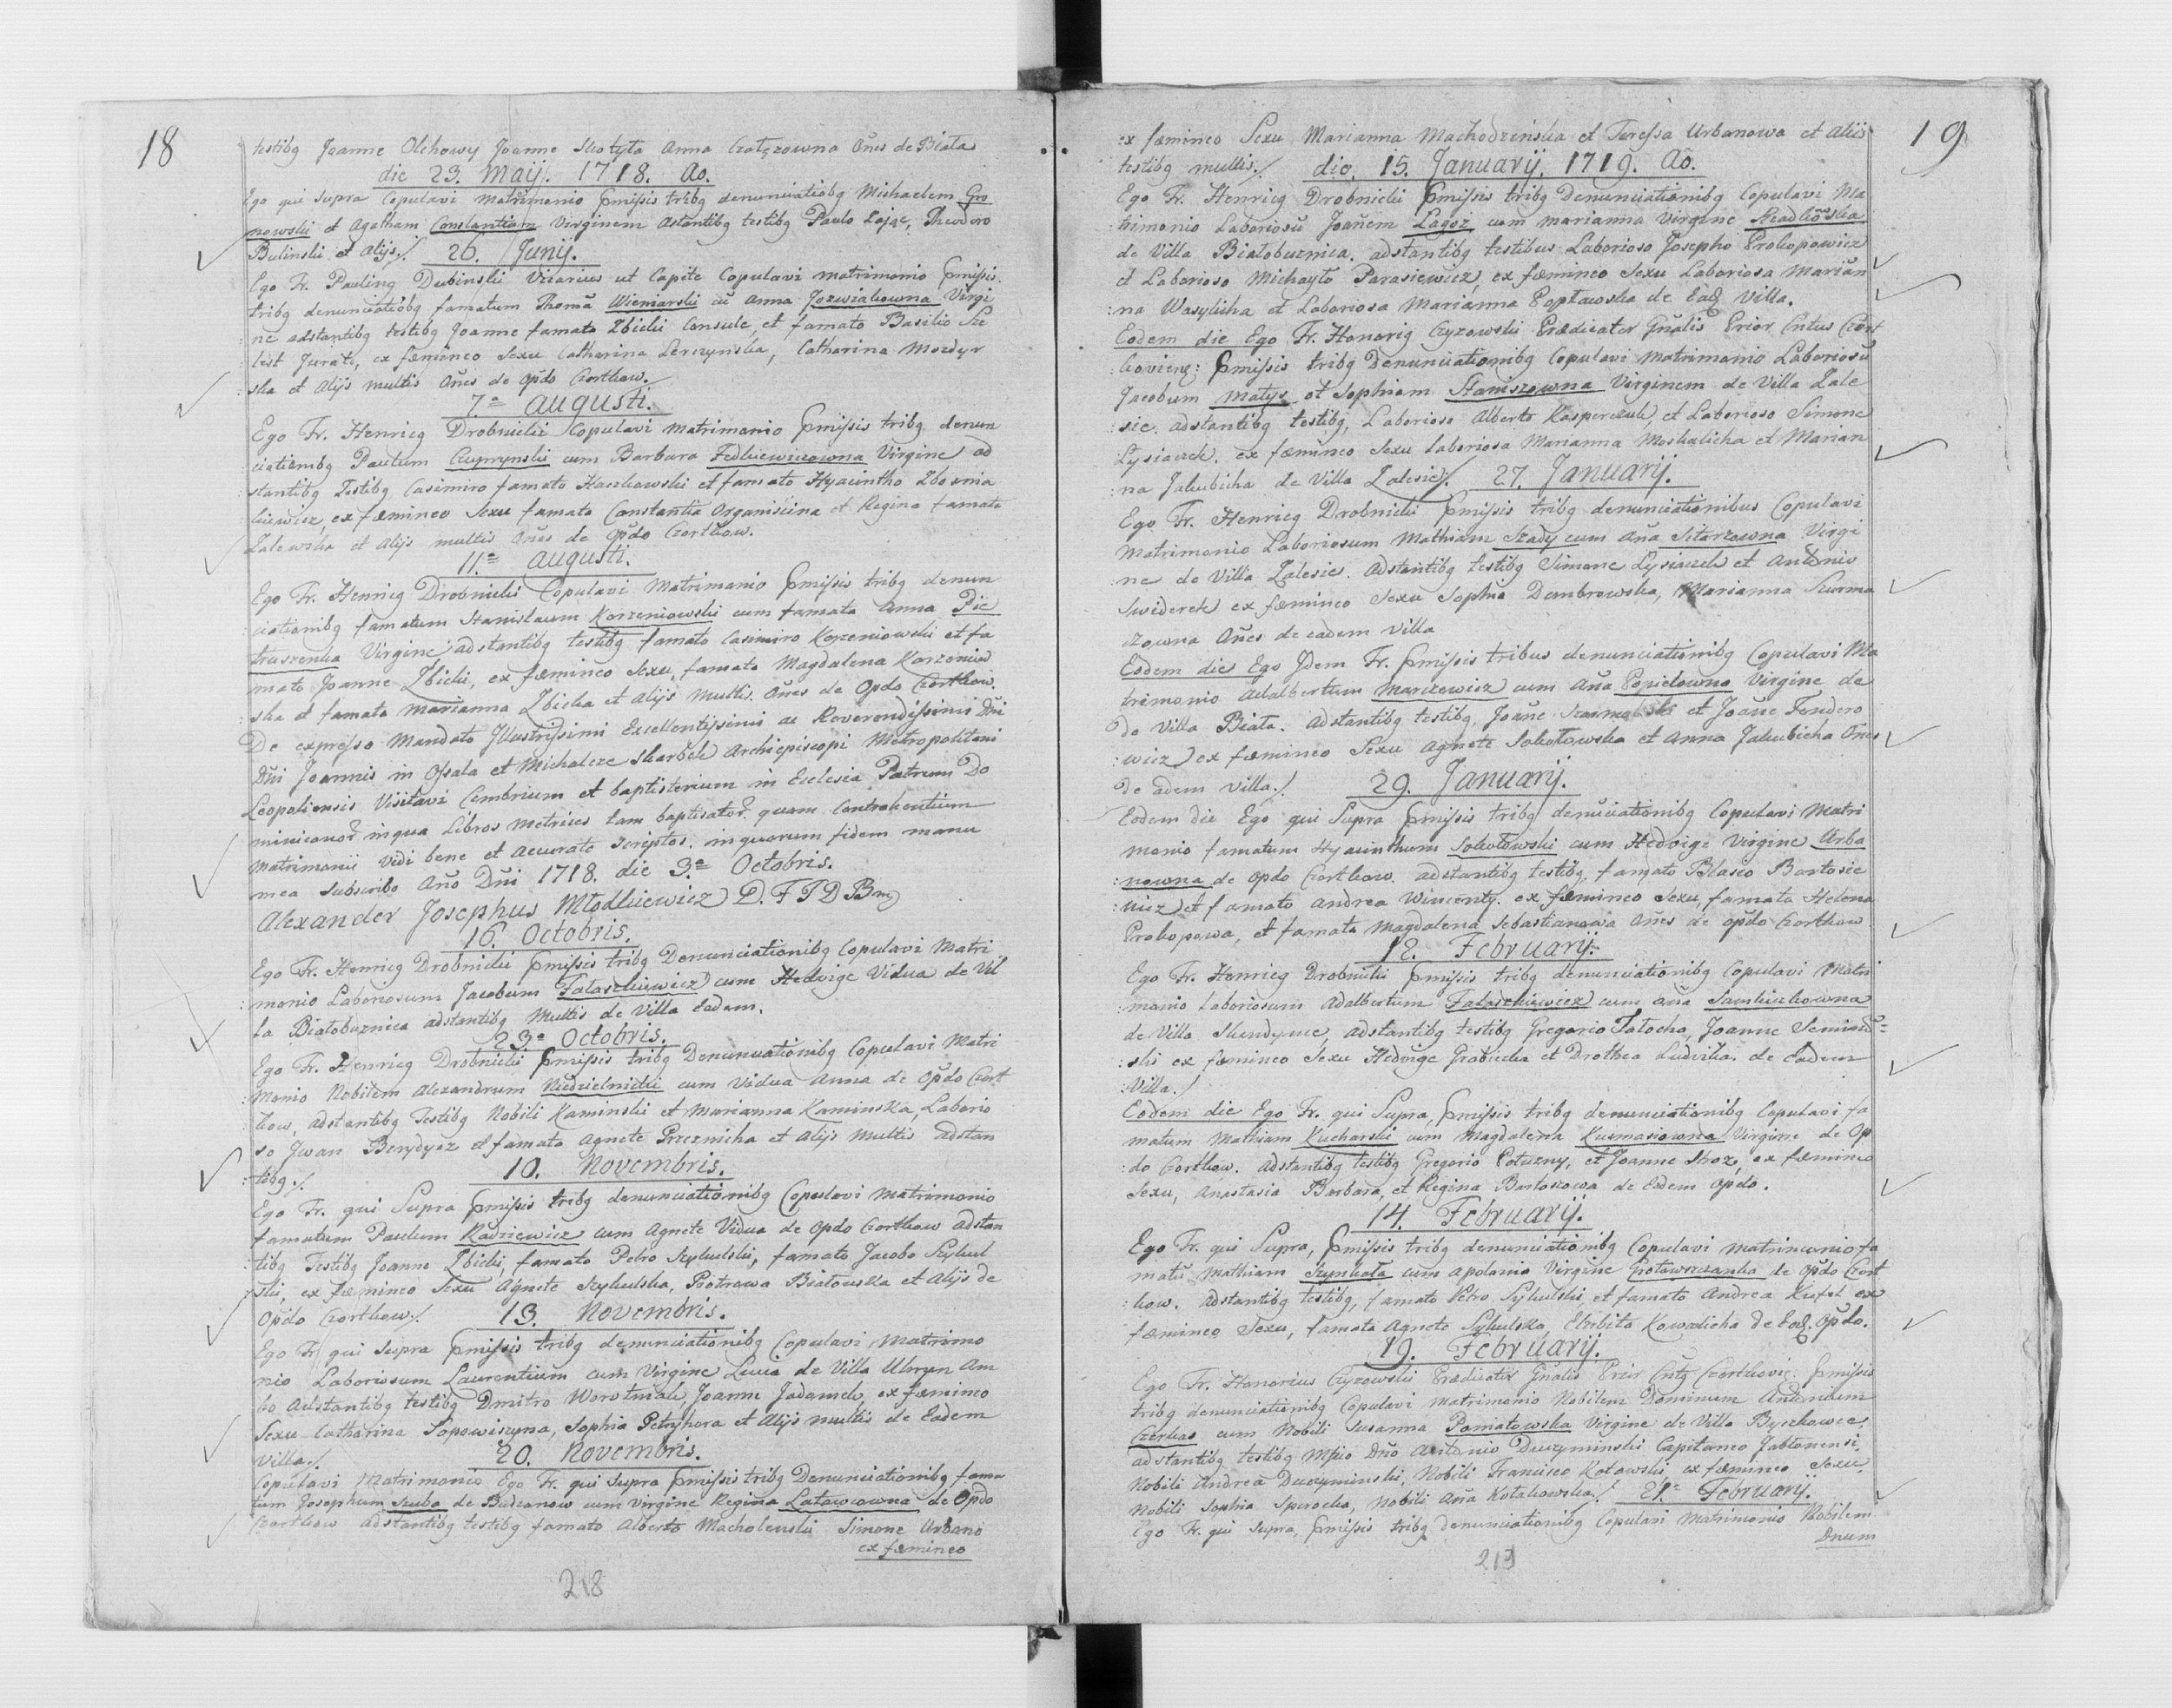 18
testibq Joanne Olchowy Joanne Anna Ones de Biała
die 23. Maij. 1718. Ao.
Ego qui supra Copulavi matrimonio pmissis tribq denunciatiobq Michaelem Gro
nowski et Agatham Constantiam Virginem Astantibq testibq Paulo Zając, Theodoro
Bulinski et alijs./. 26. Junij.
Ego Fr. Paulinq Dubinski Vicarius ut Capite Copulavi matrimonio pmissis
tribq denunciatiobq famatum Thomã Wiemarski cũ Anna Jozwiakowna Virgi
ne adstantibq testibq Joanne famato Zbicki Consule, et famato Basilio
Jurato, ex fæmineo Sexu Catharina Serczynska, Catharina Mozdyr
ska et Alijs multis Oñes de opdo Czortkow.
7.a Augusti.
Ego Fr. Henricq Drobnicki Copulavi matrimonio pmissis tribq denun
ciationibq Paulum Czuprynski cum Barbara Fedkiewiczowna Virgine ad
stantibq Testibq Casimiro famato Haszkowski et famato Hyacintho
kiewicz, ex fæmineo Sexu famata Constantia Organiscina et Regina famata
Zalewska et Alijs multis Oñes de opdo Czortkow.
11.a Augusti.
Ego Fr. Henricq Drobnicki Copulavi Matrimonio pmissis tribq denun
ciationibq famatum Stanislaum Korzeniowski cum famata Anna Pie
truszenka Virgine adstantibq testibq famato Casimiro Korzeniowski et fa
mato Joanne Zbicki, ex fæmineo Sexu, famata Magdalena Korzeniow
ska et famata Marianna Zbicka et Alijs multis Oñes de Opdo Czortkow.
De expresso Mandato Illustrissimi Excellentissimi ac Reverendissimi Dñi
Dñi Joannis in Gsala et Michalcze Skarbek Archiepiscopi Metropolitani
Leopoliensis Visitavi Cimbrium et baptisterium in Eclesia Patrum Do
minicanor. inqua Libros Metrices tam baptisator. quam Contrahentium
Matrimonii vidi bene et accurate scriptos. inquorum fidem manu
mea subscribo Año Dñi 1718. die 3.a Octobris.
Alexander Josephus Młodkiewicz D. F I D
16. Octobris.
Ego Fr. Henricq Drobnicki pmissis tribq Denunciationibq Copulavi Matri
monio Laboriosum Jacobum Falaszkiewicz cum Hedvige Vidua de Vil
la Białobuznica adstantibq Multis de Villa Eadem.
23.a Octobris.
Ego Fr. Henricq Drobnicki pmissis tribq Denunciationibq Copulavi Matri
monio Nobilem Alexandrum Niedzielnicki cum Vidua Anna de Opdo Czort
kow, adstantibq Testibq Nobili Kaminski et Marianna Kaminska, Laborio
so Jwan Benydysz et famata Agnete Przeznicha et Alijs Multis adstan
tibq./.
10. Novembris.
Ego Fr. qui Supra pmissis tribq denunciationibq Copulavi Matrimonio
famatum Paulum Radziewicz cum Agnete Vidua de Opdo Czortkow adstan
tibq Testibq Joanne Zbicki, famato Petro Szykulski, famato Jacobo Szykul
ski, ex fæmineo Sexu Agnete Szykulska, Piotrowa Białowska et Alijs de
Opdo Czortkow./. 13. Novembris.
Ego Fr qui supra pmissis tribq denunciationibq Copulavi Matrimo
nio Laboriosum Laurentium cum Virgine Lucia de Villa Uhryn Am
bo Adstantibq testibq Dmitro Worotniak, Joanne Jadamek, ex fæmineo
Sexu Catharina Popowiczyna, Sophia Petryhora et Alijs multis de Eadem
Villa./.
20. Novembris.
Copulavi Matrimonio Ego Fr. qui supra pmissis tribq Denunciationibq fama
tum Josephum Szuba de Budzanow cum Virgine Regina Latawcowna de Opdo
Czortkow adstantibq testibq famato Alberto Macholenski Simone Urbano
ex fæmineo
218
19
ex fæmineo Sexu Marianna Machodzenska et Teressa Urbanowa et Aliis
testibq multis./. die. 15. Januarij, 1719. Ao.
Ego Fr. Henricq Drobnicki pmissis tribq Denunciationibq Copulavi Ma
trimonio Laboriosũ Joañem Łagoz cum Marianna Virgine Szadkoska
de Villa Białobuznica. adstantibq testibus Laborioso Josepho Prokopowicz
et Laborioso Michayło Parasiewicz, ex fæmineo Sexu Laboriosa Mariãn
na Wasylicha et Laboriosa Marianna Popławska de Eadq Villa.
Eodem die Ego Fr. Honoriq Czyzowski Prædicator Gñalis Prior Cntus Czort
kovienq: pmissis tribq Denunciationibq Copulavi Matrimonio Laboriosũ
Jacobum Matys et Sophiam Staniszowna Virginem de Villa Zale
sie. adstantibq testibq, Laborioso Alberto Kasperczuk, et Laborioso Simone
Łysiaczek. ex fæmineo Sexu Laboriosa Marianna Moskalicha et Marian
na Jakubicha de Villa Zalesie./. 27. Januarij.
Ego Fr. Henricq Drobnicki pmissis tribq denunciationibus Copulavi
Matrimonio Laboriosum Mathiam Szady cum Aña Sitarzowna Virgi
ne de Villa Zalesie. Adstantibq testibq Simone Łysiaczek et Antonio
Swiderek ex fæmineo Sexu Sophia Dombrowska, Marianna Szurma
czowna Oñes de eadem Villa
Eodem die Ego Jdem Fr. pmissis tribus denunciationibq Copulavi Ma
trimonio Adalbertum Marczewicz cum Aña Popielowna Virgine de
de Villa Biała. Adstantibq testibq. Joañe et Joañe Fendero
wicz ex fæmineo Sexu Agnete Sokołowska et Anna Jakubicha Oñes
de adem Villa./. 29. Januarij.
Eodem die Ego qui Supra pmissis tribq denũciationibq Copulavi Matri
monio famatum Hyacinthum Sokołowski cum Hedvige Virgine Urba
nowna de opdo Czortkow. adstantibq testibq. famato Blasio Bartosie
wicz et famato Andrea Wincenty. ex fæmineo Sexu, famata Helena
Prokopowa, et famata Magdalena Sebastianowa Oñes de opdo Czortkow
12. Februarij.
Ego Fr. Henricq Drobnicki pmissis tribq denunciationibq Copulavi Matri
monio Laboriosum Adalbertum Falaszkiewicz cum Aña
de Villa Skorodynce, adstantibq testibq Gregorio Tatocha, Joanne
ski ex fæmineo Sexu Hedvige Grabicka et Drothea Ludvika. de Eadem
Villa./.
Eodem die Ego Fr. qui Supra, pmissis tribq denunciationibq Copulavi fa
matum Mathiam Kucharski cum Magdalena Kusmasiowna Virgine de Op
do Czortkow. Adstantibq testibq Gregorio Potuzny, et Joanne Stroz, ex fæmineo
Sexu, Anastasia Barbara, et Regina Bartoszowa de Eodem opdo.
14. Februarij.
Ego Fr. qui Supra, pmissis tribq denunciationibq Copulavi matrimonio fa
matũ Mathiam Szynkata cum Apolonia Virgine de opdo Czort
kow. Adstantibq testibq, famato Petro Sykulski et famato Andrea Kufel ex
fæmineo Sexu, famata Agnete Sykulska, Elzbita Kowalicha de Eodq. Opdo.
19. Februarij.
Ego Fr. Honorius Czyzowski Prædicator Gñalis Prior Cntq Czortkovie. pmissis
tribq denunciationibq Copulavi Matrimonio Nobilem Dominum Antonium
Czerkas cum Nobili Susanna Poniatowska Virgine de Villa Byczkowce,
adstantibq testibq Mfico Dño Antonio Duczyminski Capitaneo Jabłonensi,
Nobili Andrea Duczyminski, Nobili Francisco Kotowski, ex fæmineo Sexu.
Nobili Sophia Sperocka, Nobili Aña Kołakowska./. 21.a Februarij.
Ego Fr. qui supra, pmissis tribq denunciationibq Copulavi Matrimonio Nobilem
Dnum
213